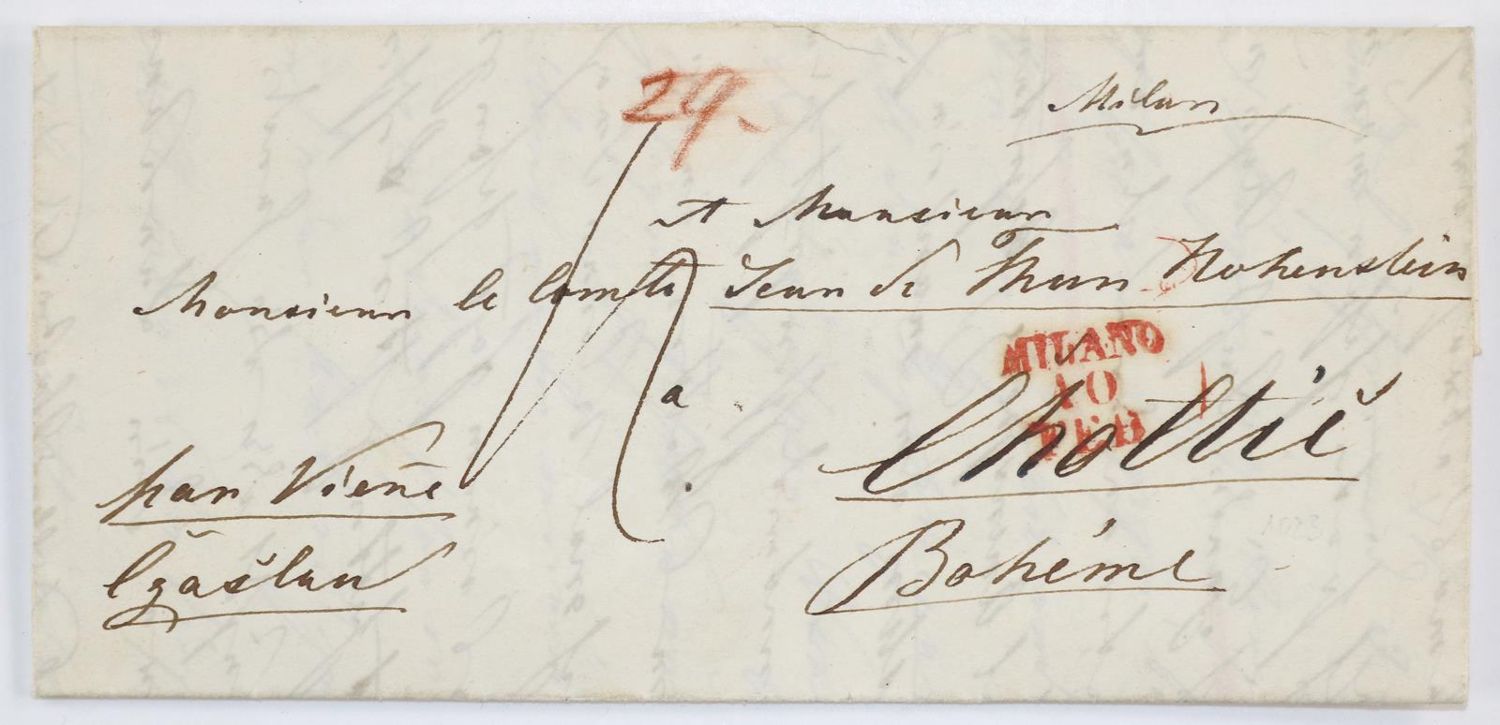 29.
Milan
A Monsieur
Monsieur le Comte Jean de Thun Hohenstein
MILANO
10
FEB
a
Choltič
par Vieñe
Bohéme
Czaślau